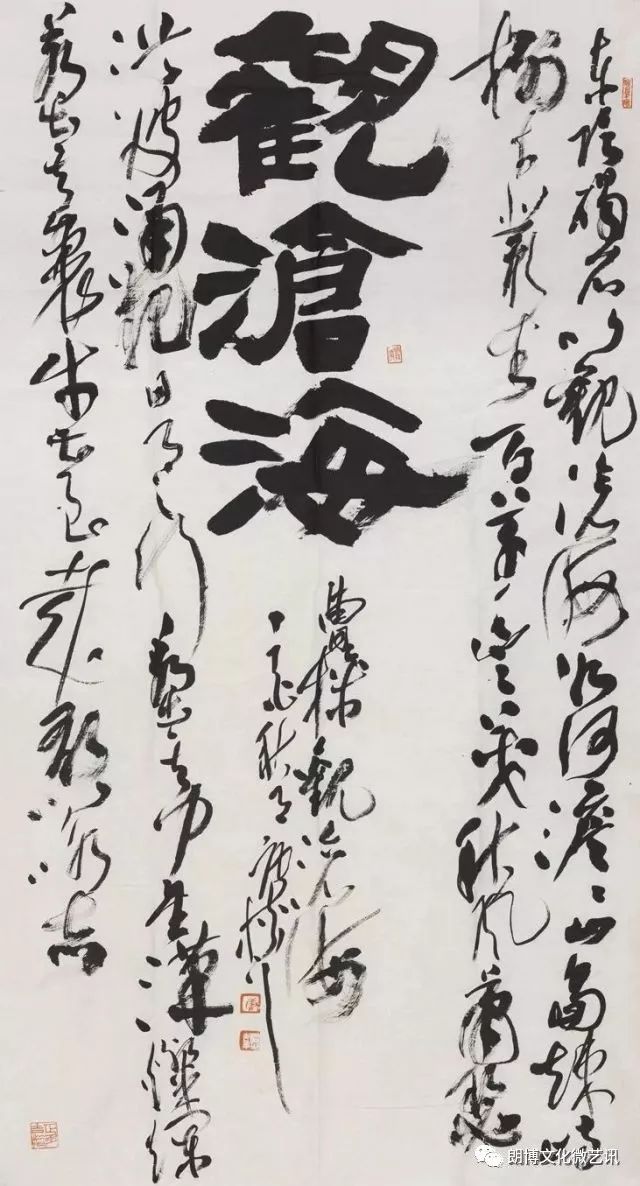 東臨碣石以觀滄海水何澹〻山島竦峙
樹木叢生百草豐茂秋風蕭瑟
觀滄海
洪波涌起日月之行若出其中星漢燦爛
若出其裏幸甚至哉歌以詠志
曹操觀滄海
秋月
朗博文化微艺讯